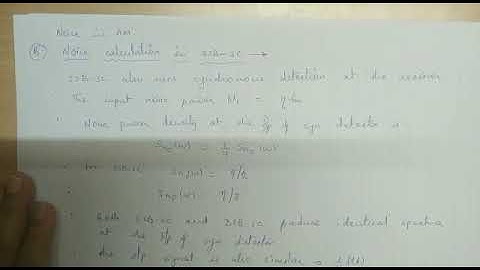 Noise in AM
(B) Noise calculation in SSB-SC →
SSB-SC also uses synchronous detection at the receiver
The input noise power Ni = η fm
Noise power density at the O/p of syn detector is
Sno(ω) = 1/4 Sni(ω)
Sni(ω) = η/2
= η/8
Both SSB-SC and DSB-SC produce identical spectra
at the I/p of syn detector
the o/p signal is also similar